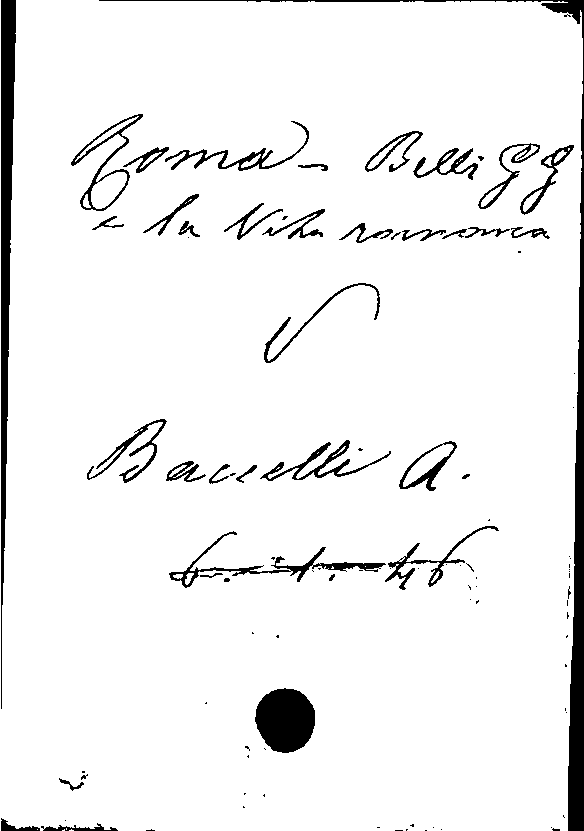 Roma - Belli G G
e la Vita romana
V
Baccelli A.
6. 1. 46